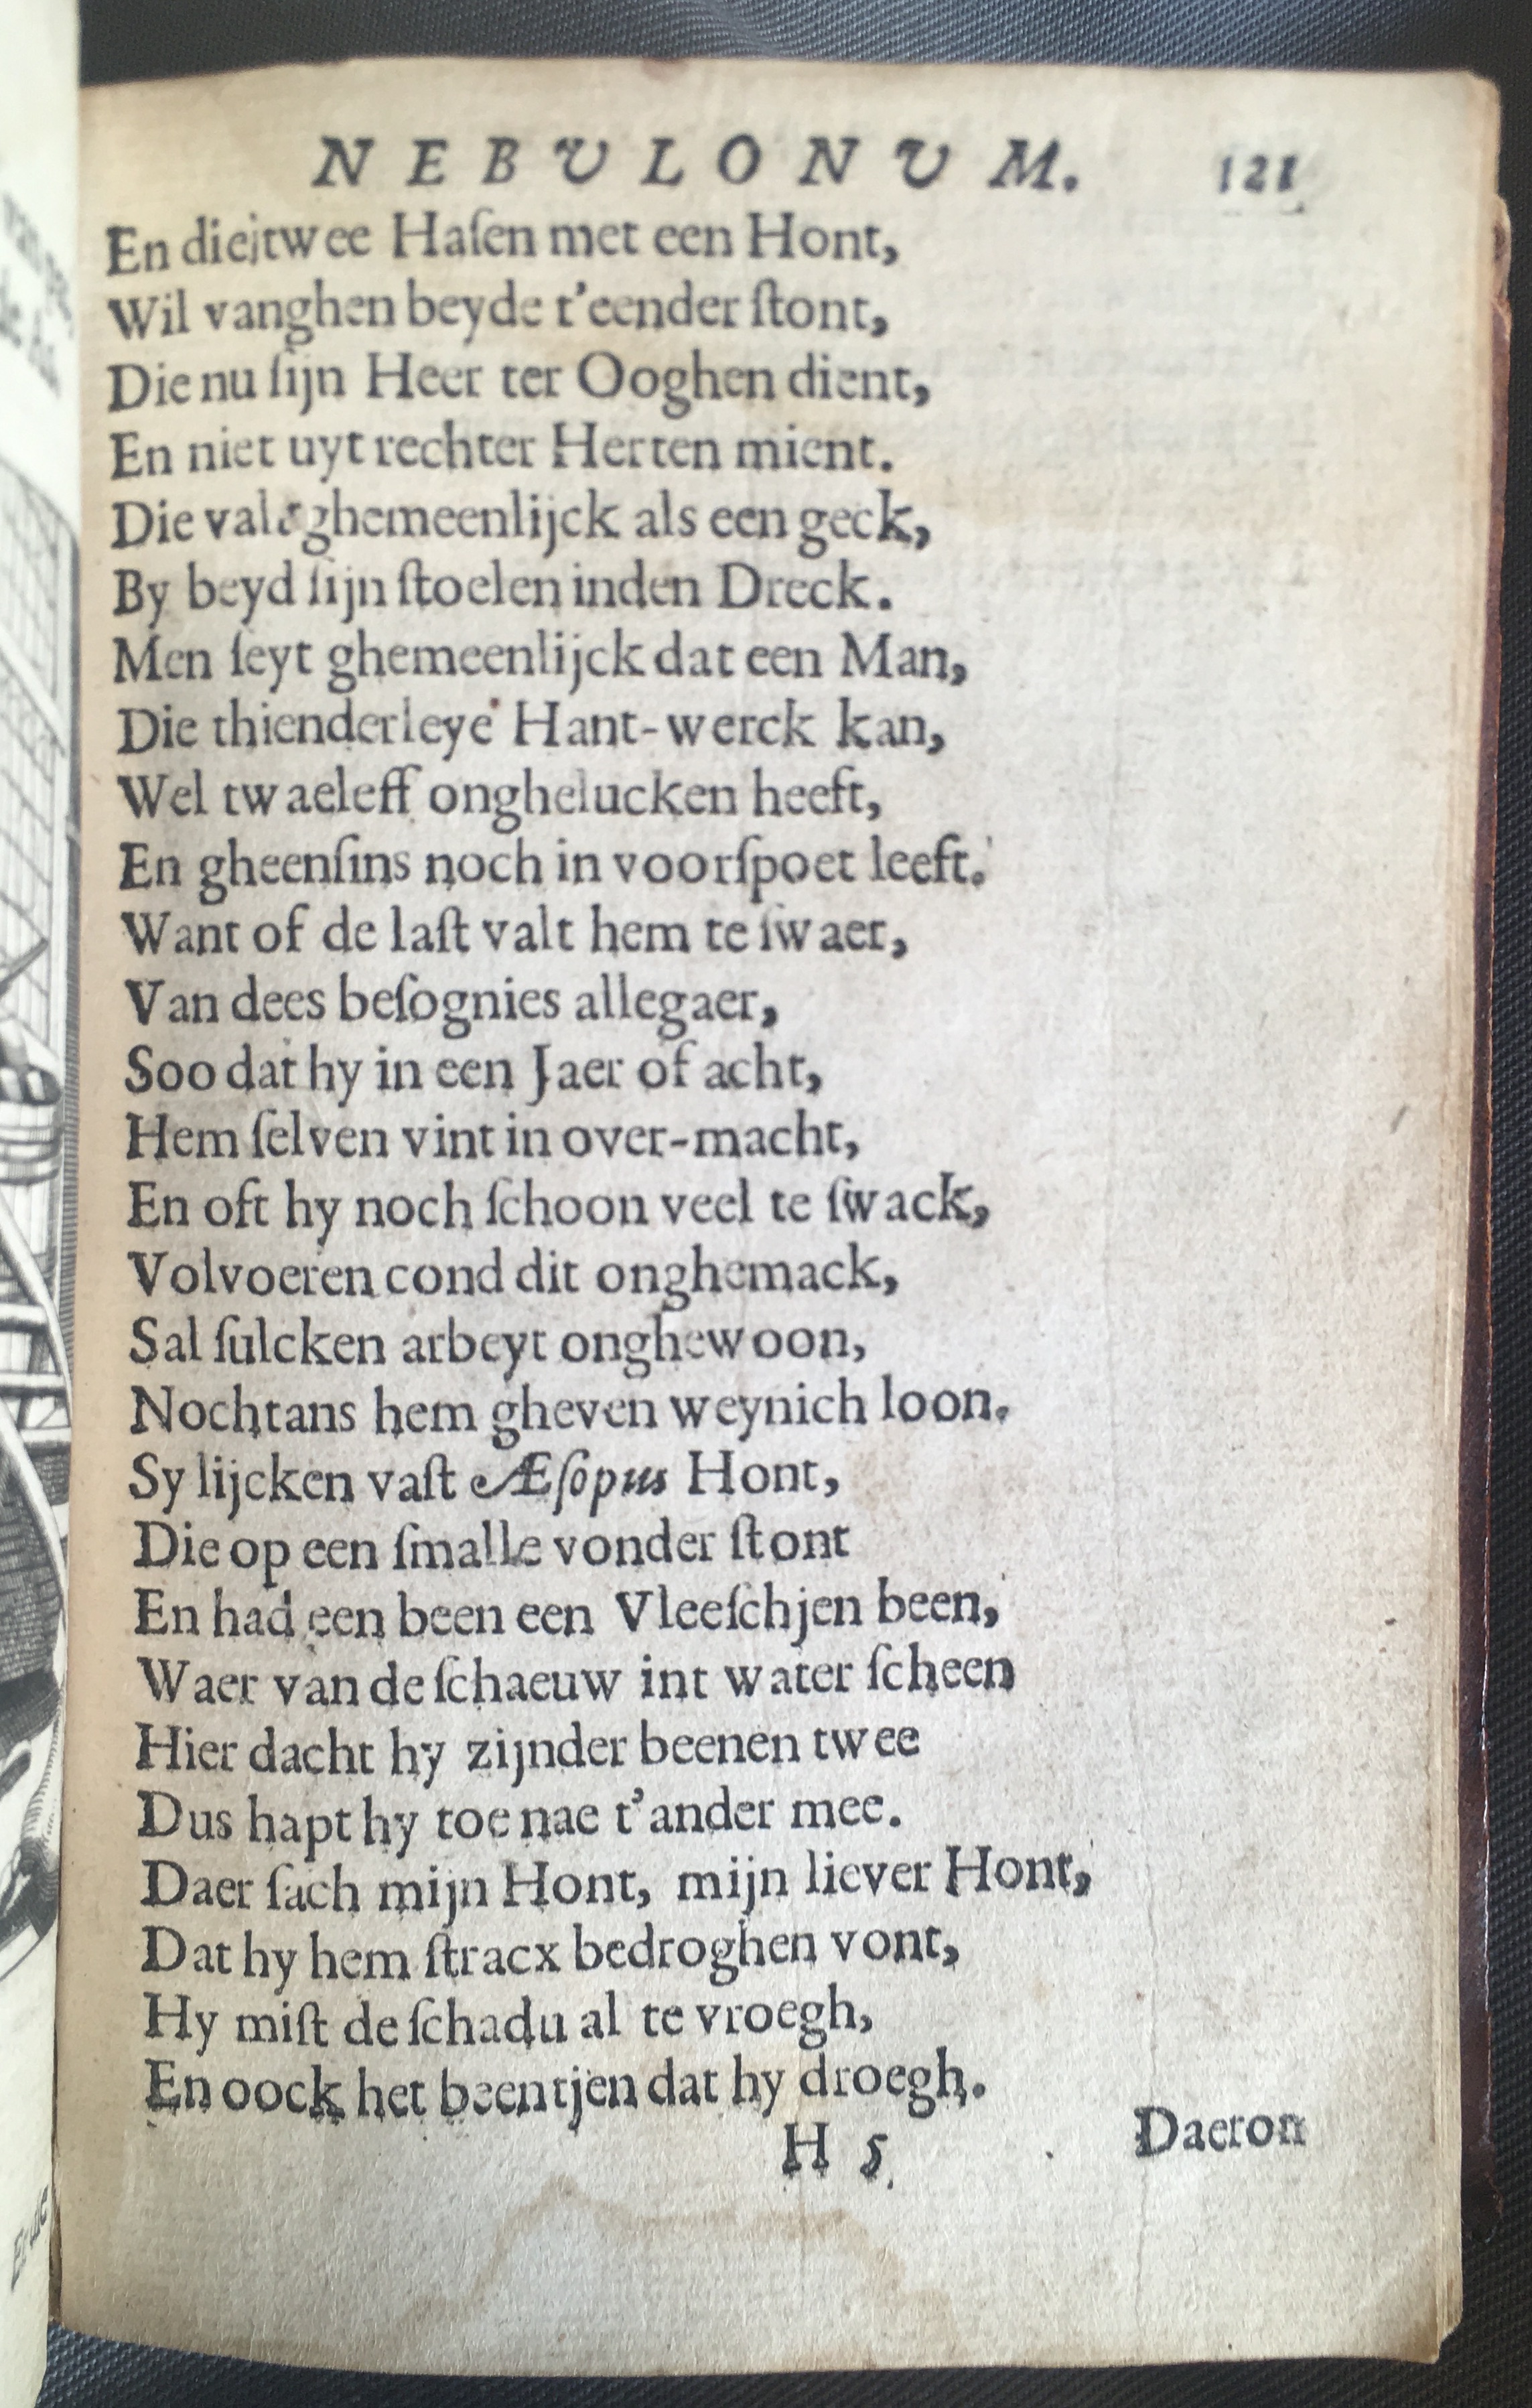 NEBVLONVM. 121
En die twee Haſen met een Hont,
Wil vanghen beyde t'eender ſtont,
Die nu ſijn Heer ter Ooghen dient,
En niet uyt rechter Herten mient.
Die valt ghemeenlijck als een geck,
By beyd ſijn ſtoelen inden Dreck.
Men ſeyt ghemeenlijck dat een Man,
Die thienderleye Hant-werck kan,
Wel twaeleff onghelucken heeft,
En gheenſins noch in voorſpoet leeft.
Want of de laſt valt hem te ſwaer,
Van dees beſognies allegaer,
Soo dat hy in een Jaer of acht,
Hem ſelven vint in over-macht,
En oft hy noch ſchoon veel te ſwack,
Volvoeren cond dit onghemack,
Sal ſulcken arbeyt onghewoon,
Nochtans hem gheven weynich loon.
Sy lijcken vaſt Æſopus Hont,
Die op een ſmalle vonder ſtont
En had een been een Vleeſchjen been,
Waer van de ſchaeuw int water ſcheen
Hier dacht hy zijnder beenen twee
Dus hapt hy toe nae t'ander mee.
Daer ſach mijn Hont, mijn liever Hont,
Dat hy hem ſtracx bedroghen vont,
Hy miſt de ſchadu al te vroegh,
En oock het beentjen dat hy droegh.
H 5 Daerom